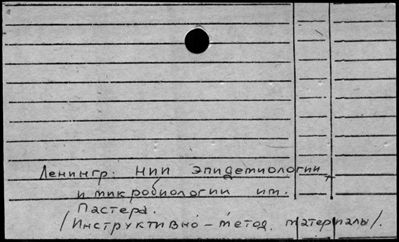 Ленингр. НИИ эпидемиологии
и микробиологии им.
Пастера.
/Инструктивно-метод. материалы/.